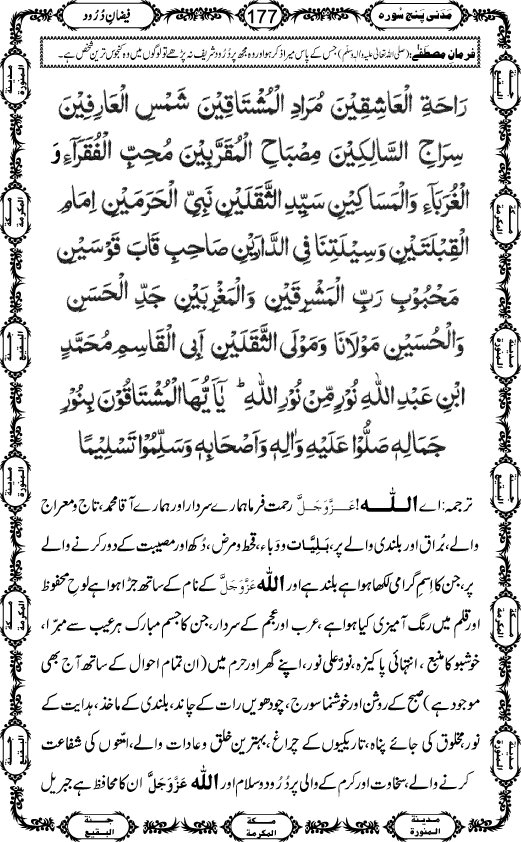 مَدَنی پنج سورہ
177
فیضانِ دُرُود
فرمانِ مصطَفٰے: (صلی اللہ تعالیٰ علیہ والہ وسلّم) جس کے پاس میرا ذکر ہو اور وہ مجھ پر دُرُود شریف نہ پڑھے تو لوگوں میں وہ کنجوس ترین شخص ہے۔
رَاحَةِ الْعَاشِقِيْنَ مُرَادِ الْمُشْتَاقِيْنَ شَمْسِ الْعَارِفِيْنَ
سِرَاجِ السَّالِكِيْنَ مِصْبَاحِ الْمُقَرَّبِيْنَ مُحِبِّ الْفُقَرَآءِ وَ
الْغُرَبَآءِ وَالْمَسَاكِيْنِ سَيِّدِ الثَّقَلَيْنِ نَبِيِّ الْحَرَمَيْنِ اِمَامِ
الْقِبْلَتَيْنِ وَسِيْلَتِنَا فِي الدَّارَيْنِ صَاحِبِ قَابَ قَوْسَيْنِ
مَحْبُوْبِ رَبِّ الْمَشْرِقَيْنِ وَالْمَغْرِبَيْنِ جَدِّ الْحَسَنِ
وَالْحُسَيْنِ مَوْلَانَا وَمَوْلَى الثَّقَلَيْنِ اَبِي الْقَاسِمِ مُحَمَّدِ
ابْنِ عَبْدِ اللهِ نُوْرٍ مِّنْ نُوْرِ اللهِ ؕ يٰۤاَيُّهَا الْمُشْتَاقُوْنَ بِنُوْرِ
جَمَالِهٖ صَلُّوْا عَلَيْهِ وَاٰلِهٖ وَاَصْحَابِهٖ وَسَلِّمُوْا تَسْلِيْمًا
ترجمہ: اے اللہ! عَزَّوَجَلَّ رحمت فرما ہمارے سردار اور ہمارے آقا محمد، تاج و معراج
والے، بُراق اور بلندی والے پر، بَلِیّات و وَباء، قحط و مرض، دُکھ اور مصیبت کے دور کرنے والے
پر، جن کا اسمِ گرامی لکھا ہوا ہے بلند ہے اور اللہ عَزَّوَجَلَّ کے نام کے ساتھ جڑا ہوا ہے لوحِ محفوظ
اور قلم میں رنگ آمیزی کیا ہوا ہے، عرب اور عجم کے سردار، جن کا جسم مبارک ہر عیب سے مبرّا،
خوشبو کا منبع، انتہائی پاکیزہ، نورٌ علیٰ نور، اپنے گھر اور حرم میں (ان تمام احوال کے ساتھ آج بھی
موجود ہے) صبح کے روشن اور خوشنما سورج، چودھویں رات کے چاند، بلندی کے ماخذ، ہدایت کے
نور، مخلوق کی جائے پناہ، تاریکیوں کے چراغ، بہترین خلق و عادات والے، امّتوں کی شفاعت
کرنے والے، سخاوت اور کرم کے والی پر دُرُود و سلام اور اللہ عَزَّوَجَلَّ ان کا محافظ ہے جبریل
جنة البقیع
مکة المکرمة
مدینة المنورة
جنة البقیع
مکة المکرمة
مدینة المنورة
مدینة المنورة
مکة المکرمة
جنة البقیع
مدینة المنورة
مکة المکرمة
جنة البقیع
جنة البقیع
مکة المکرمة
مدینة المنورة